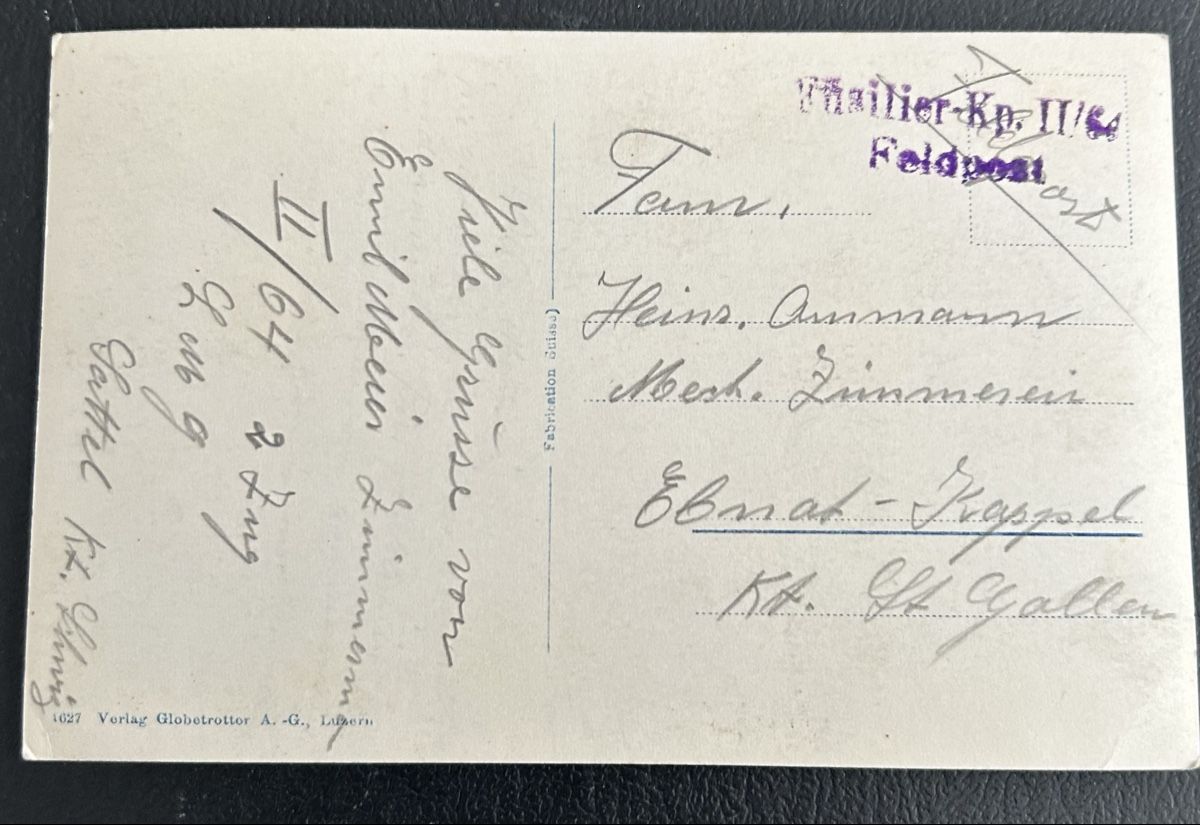 Füsilier-Kp. II/64
Feldpost
Fam.
Heinr. Ammann
Mech. Zimmerei
Ebnat-Kappel
Kt. St Gallen
Viele Grüsse von
Emil Meier Zimmermann
II/64 2 Zug
Sattel Kt. Schwyz
Fabrication Suisse)
1627 Verlag Globetrotter A.-G., Luzern